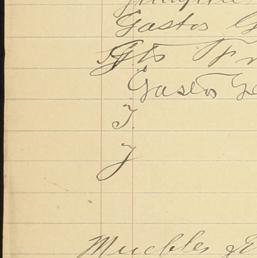 Gastos G
Gtos Fr
Gastos Ge
J.
J
Muebles &